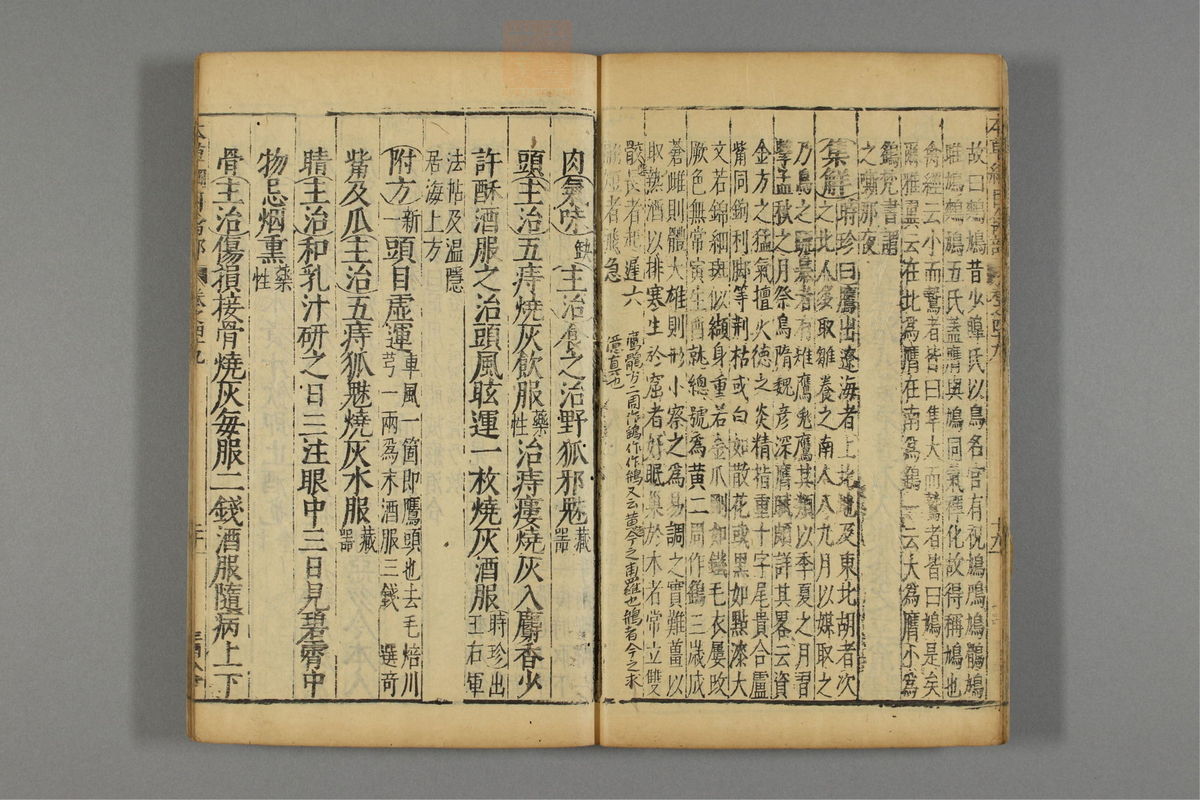 故曰鷞鳩昔少皥氏以鳥名官有祝鳩鳲鳩鶻鳩
雎鳩鷞鳩五氏蓋鷹與鳩同氣禪化故得稱鳩也
禽經云小而鷙者皆曰隼大而鷙者皆曰鳩是矣
爾雅翼云在北爲鷹在南爲鷂一云大爲鷹小爲
鷂梵書謂
之嘶那夜
集解時珍曰鷹出遼海者上北地及東北胡者次
之北人多取雛養之南人八九月以媒取之
乃鳥之疏暴者有雉鷹兔鷹其類以季夏之月習
擊孟秋之月祭鳥隋魏彦深鷹賦頗詳其畧云資
金方之猛氣擅火德之炎精指重十字尾貴合盧
觜同鉤利脚等荆枯或白如散花或黑如點漆大
文若錦細斑似纈身重若金爪剛如鐵毛衣屢改
厥色無常寅生酉就總號爲黄二周作鷂三歳成
蒼雌則體大雄則形小察之爲易調之實難薑以
取熱酒以排寒生於窟者好眠巢於木者常立雙
骹長者起遲六
翮短者飛急
肉氣味缺主治食之治野狐邪魅藏器
頭主治五痔燒灰飲服藥性治痔瘻燒灰入麝香少
許酥酒服之治頭風眩運一枚燒灰酒服時珍出王右軍
法帖及温隱
居海上方
附方新一頭目虚運車風一箇即鷹頭也去毛焙川芎一兩爲末酒服三錢 選奇
觜及爪主治五痔狐魅燒灰水服藏器
睛主治和乳汁研之日三注眼中三日見碧霄中
物忌烟熏藥性
骨主治傷損接骨燒灰每服二錢酒服隨病上下